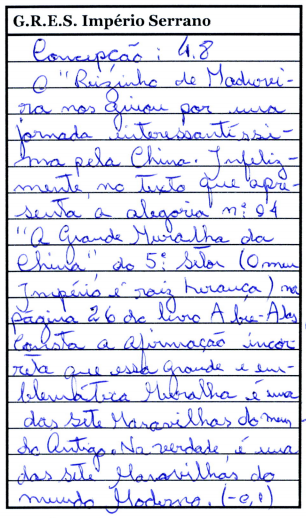 G.R.E.S. Império Serrano
Concepção: 4.8
O "Reizinho de Madurei-
ra nos guiou por uma
jornada interessantíssi-
ma pela China. Infeliz-
mente, no texto que apre
senta a alegoria nº 04
"A Grande Muralha da
China" do 5º Setor (O meu
Império é raiz herança) na
página 26 do livro Abre-Alas
consta a afirmação incor-
reta que essa grande e em-
blemática Muralha é uma
das sete Maravilhas do mun-
do Antigo. Na verdade, é uma
das sete Maravilhas do
mundo Moderno. (-0,1)